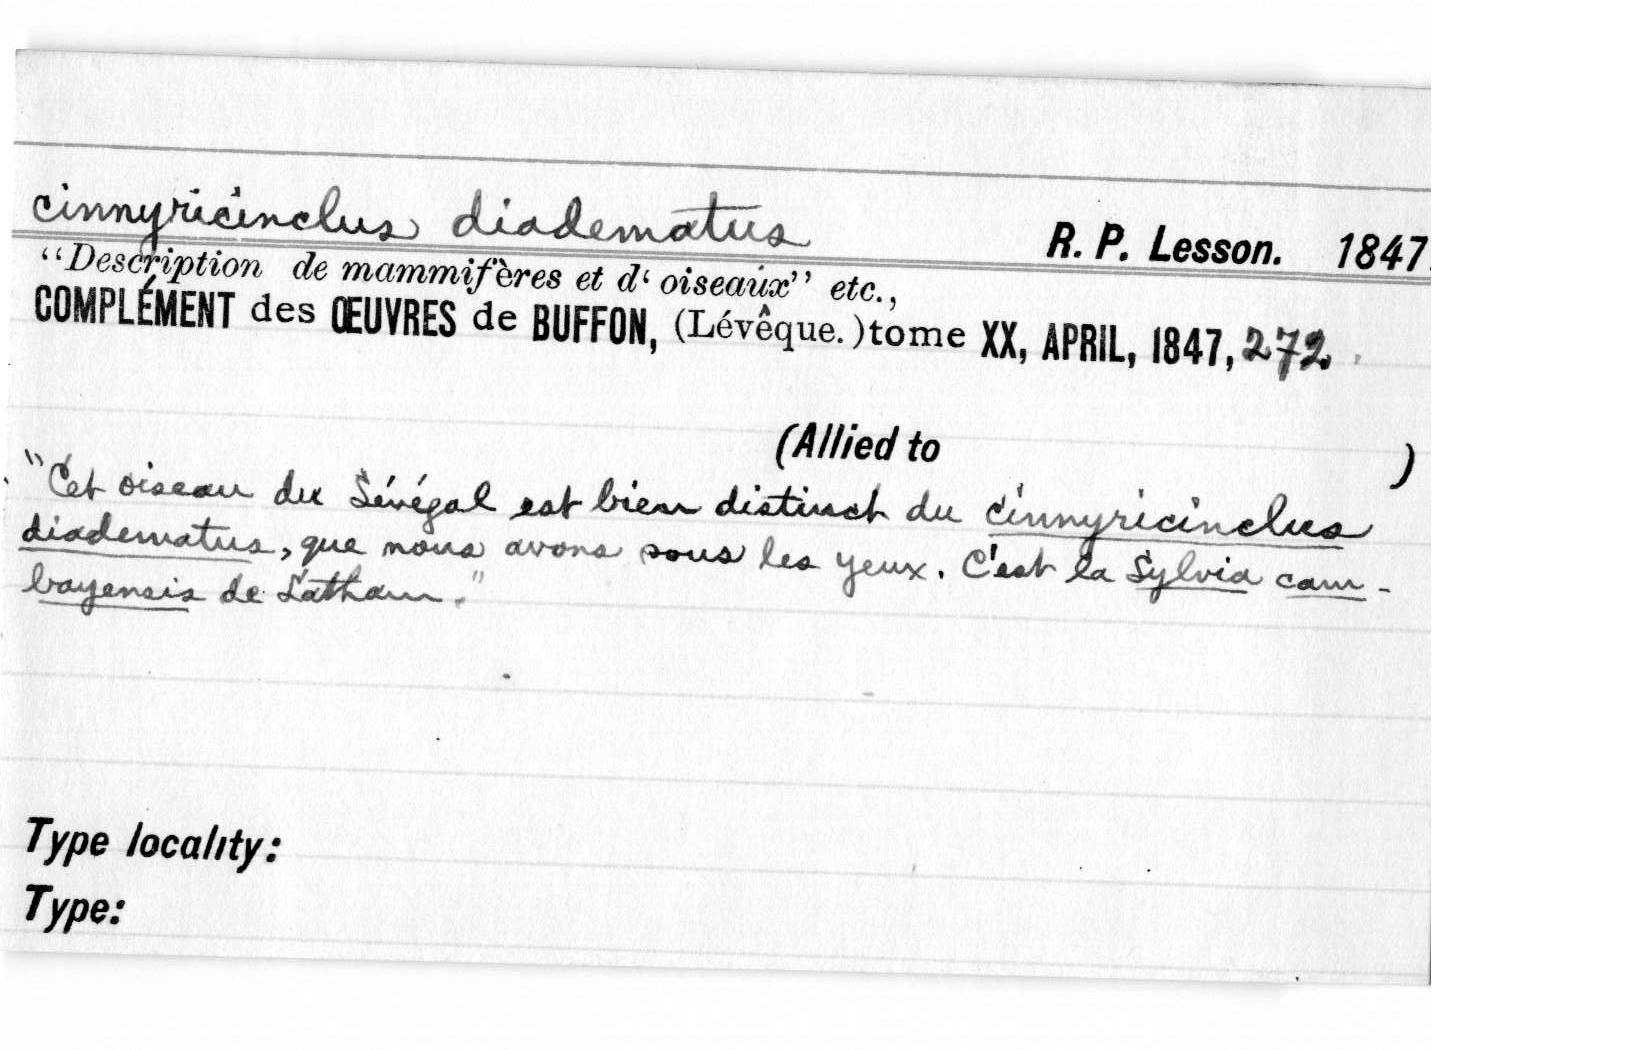 cinnyricinclus diadematus R. P. Lesson. 1847.
“Description de mammifères et d‘ oiseaux” etc.,
COMPLÉMENT des ŒUVRES de BUFFON, (Lévêque.)tome XX, APRIL, 1847, 272.
(Allied to )
"Cet oiseau du Sénégal est bien distinct du cinnyricinclus
diadematus, que nous avons sous les yeux. C'est la Sylvia cam-
bayensis de Latham."
Type locality:
Type: